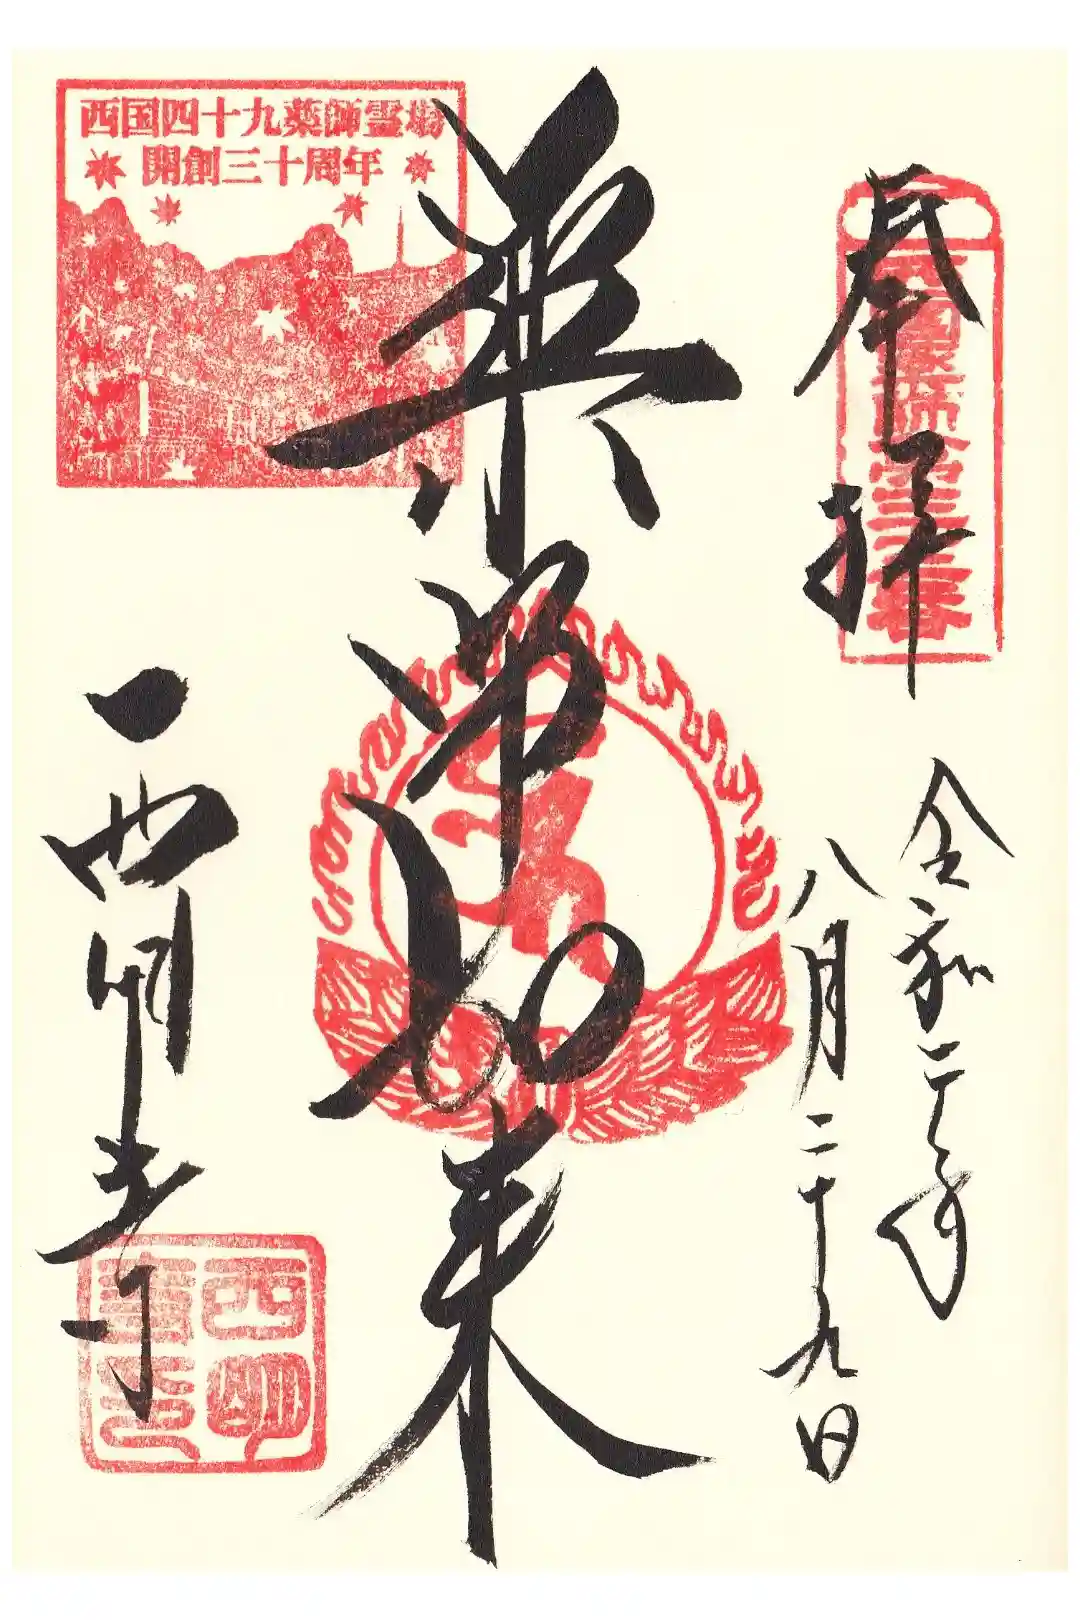 奉拝
令和二年
八月二十九日
薬師如来
西明寺
西国四十九薬師霊場
開創三十周年